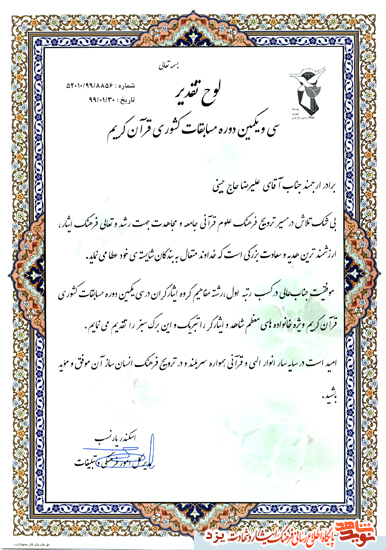 بسمه تعالی
شماره : ۵۲۰۱۰/۹۹/۸۸۵۶
تاریخ : ۹۹/۰۱/۳۰
لوح تقدیر
سی و یکمین دوره مسابقات کشوری قرآن کریم
برادر ارجمند جناب آقای علیرضا حاج حینی
بی شک تلاش در مسیر ترویج فرهنگ علوم قرآنی جامعه و مجاهدت جهت رشد و تعالی فرهنگ ایثار،
ارزشمند ترین هدیه و سعادت بزرگی است که خداوند متعال به بندگان شایسته ی خود عطا می نماید.
موفقیت جنابعالی در کسب رتبه اول، رشته مفاهیم گروه ایثارگران در سی یکمین دوره مسابقات کشوری
قرآن کریم ویژه خانواده های معظم شاهد و ایثارگر را تبریک و این برگ سبز را تقدیم می نمایم.
امید است در سایه سار انوار الهی و قرآنی همواره سربلند و در ترویج فرهنگ انسان ساز آن موفق و مؤید
باشید.
اسکندر یارنسب
مدیرکل امور فرهنگی و تبلیغات
نوید شاهد
پایگاه اطلاع رسانی فرهنگ ایثار و شهادت یزد